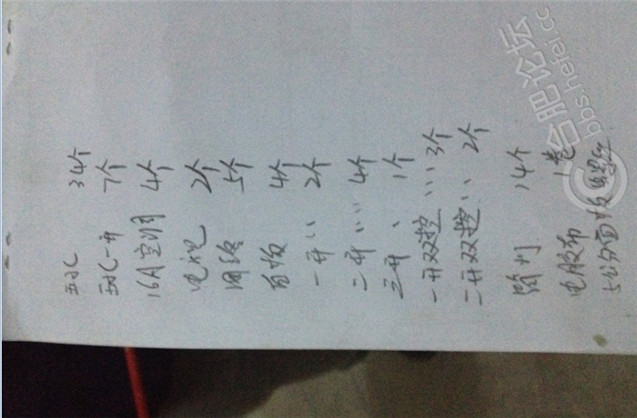 五孔 34个
五孔一开 7个
16A空调 4个
电视 2个
网络 5个
白板 4个
一开 2个
二开 4个
三开 1个
一开双控 3个
二开双控 2个
筒灯 14个
电胶布 1卷
5公分面板螺丝
合肥论坛
bbs.hefei.cc